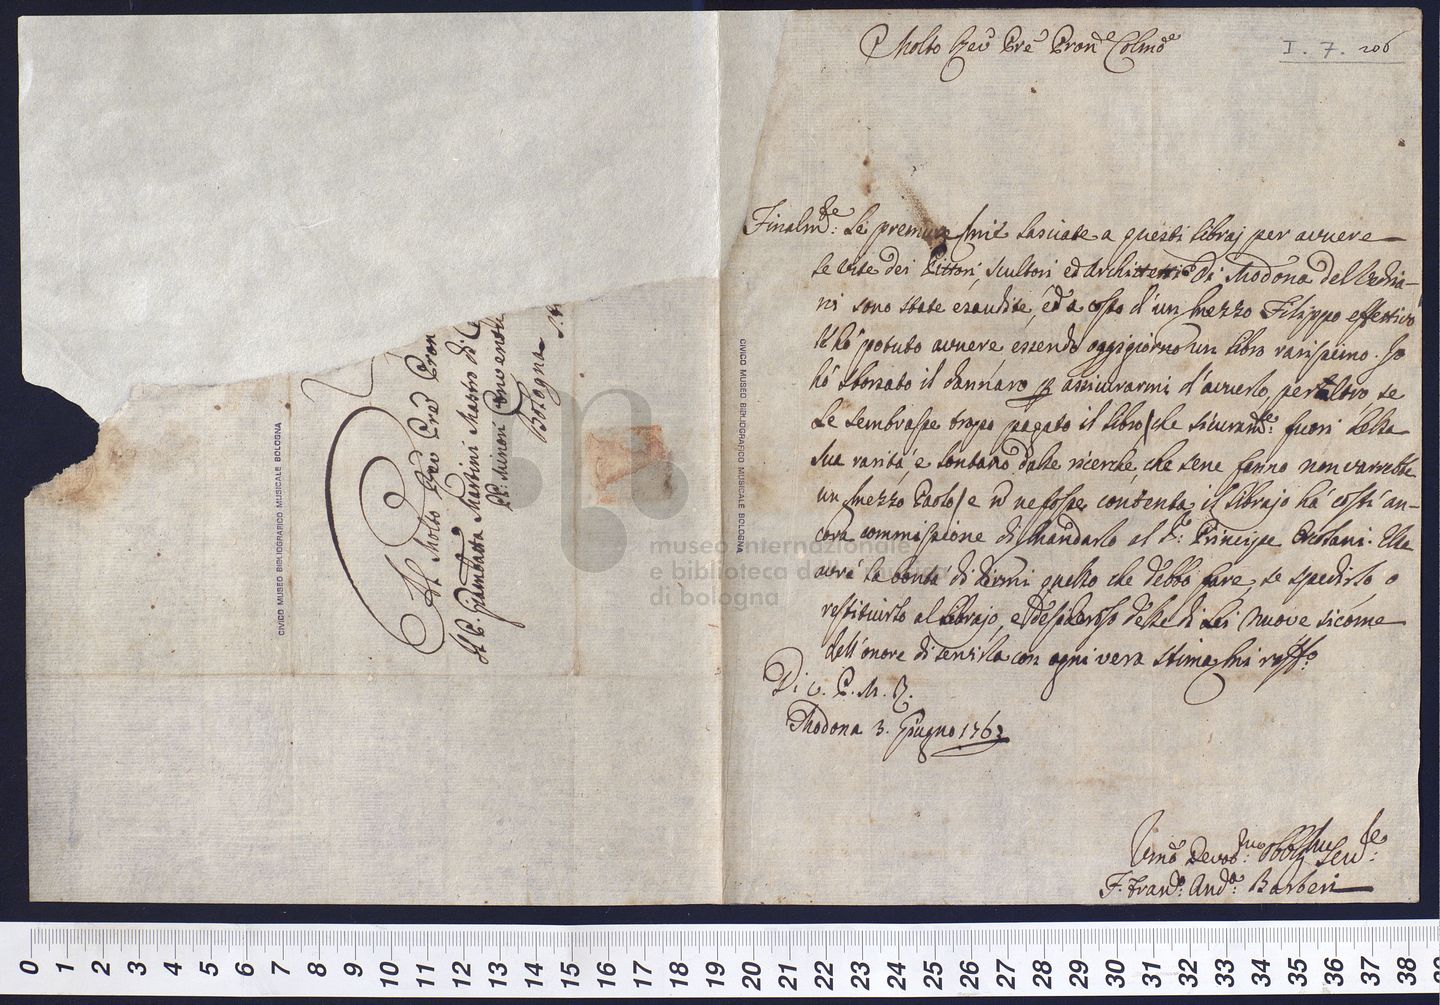 Molto Rev.do Pre Pron.e Colmo
I. 7. 206
Finalm.te le premure mie lasciate a questi libraj per avvere
le vite dei Pittori, scultori ed Architetti di Modona del Vedria-
ni sono state esaudite, ed a costo d'un mezzo Filippo effettivo
l'hò potuto avvere essendo oggigiorno un libro rarissimo. Io
hò sborsato il dannaro per assicurarmi d'avverlo, per altro se
Le sembrasse tropo pagato il libro, che sicuram.te fuori della
sua rarità, e lontano dalle ricerche che sene fanno non varrebbe
un mezzo Paolo, e non ne fosse contenta, il librajo hà costì an-
cora commissione di mandarlo al S.r Principe Ercolani. Ella
avrà la bontà di dirmi quello che debbo fare, se spedirlo o
restituirlo al librajo, e desideroso delle di Lei nuove sicome
dell'onore di servirla con ogni vera stima mi raff.o
Di V. P. M. R.
Modona 3. Giugno 1763
Umo Devot.mo Obbl.mo Serv.e
F. Fran.o And.a Barberi
Al Molto Rev Pre Pron
Il P. Giambatta Martini Mastro di Ce
PP: Minori Conventu
Bologna
CIVICO MUSEO BIBLIOGRAFICO MUSICALE BOLOGNA
CIVICO MUSEO BIBLIOGRAFICO MUSICALE BOLOGNA
museo internazionale
e biblioteca della musica
di bologna
0 1 2 3 4 5 6 7 8 9 10 11 12 13 14 15 16 17 18 19 20 21 22 23 24 25 26 27 28 29 30 31 32 33 34 35 36 37 38